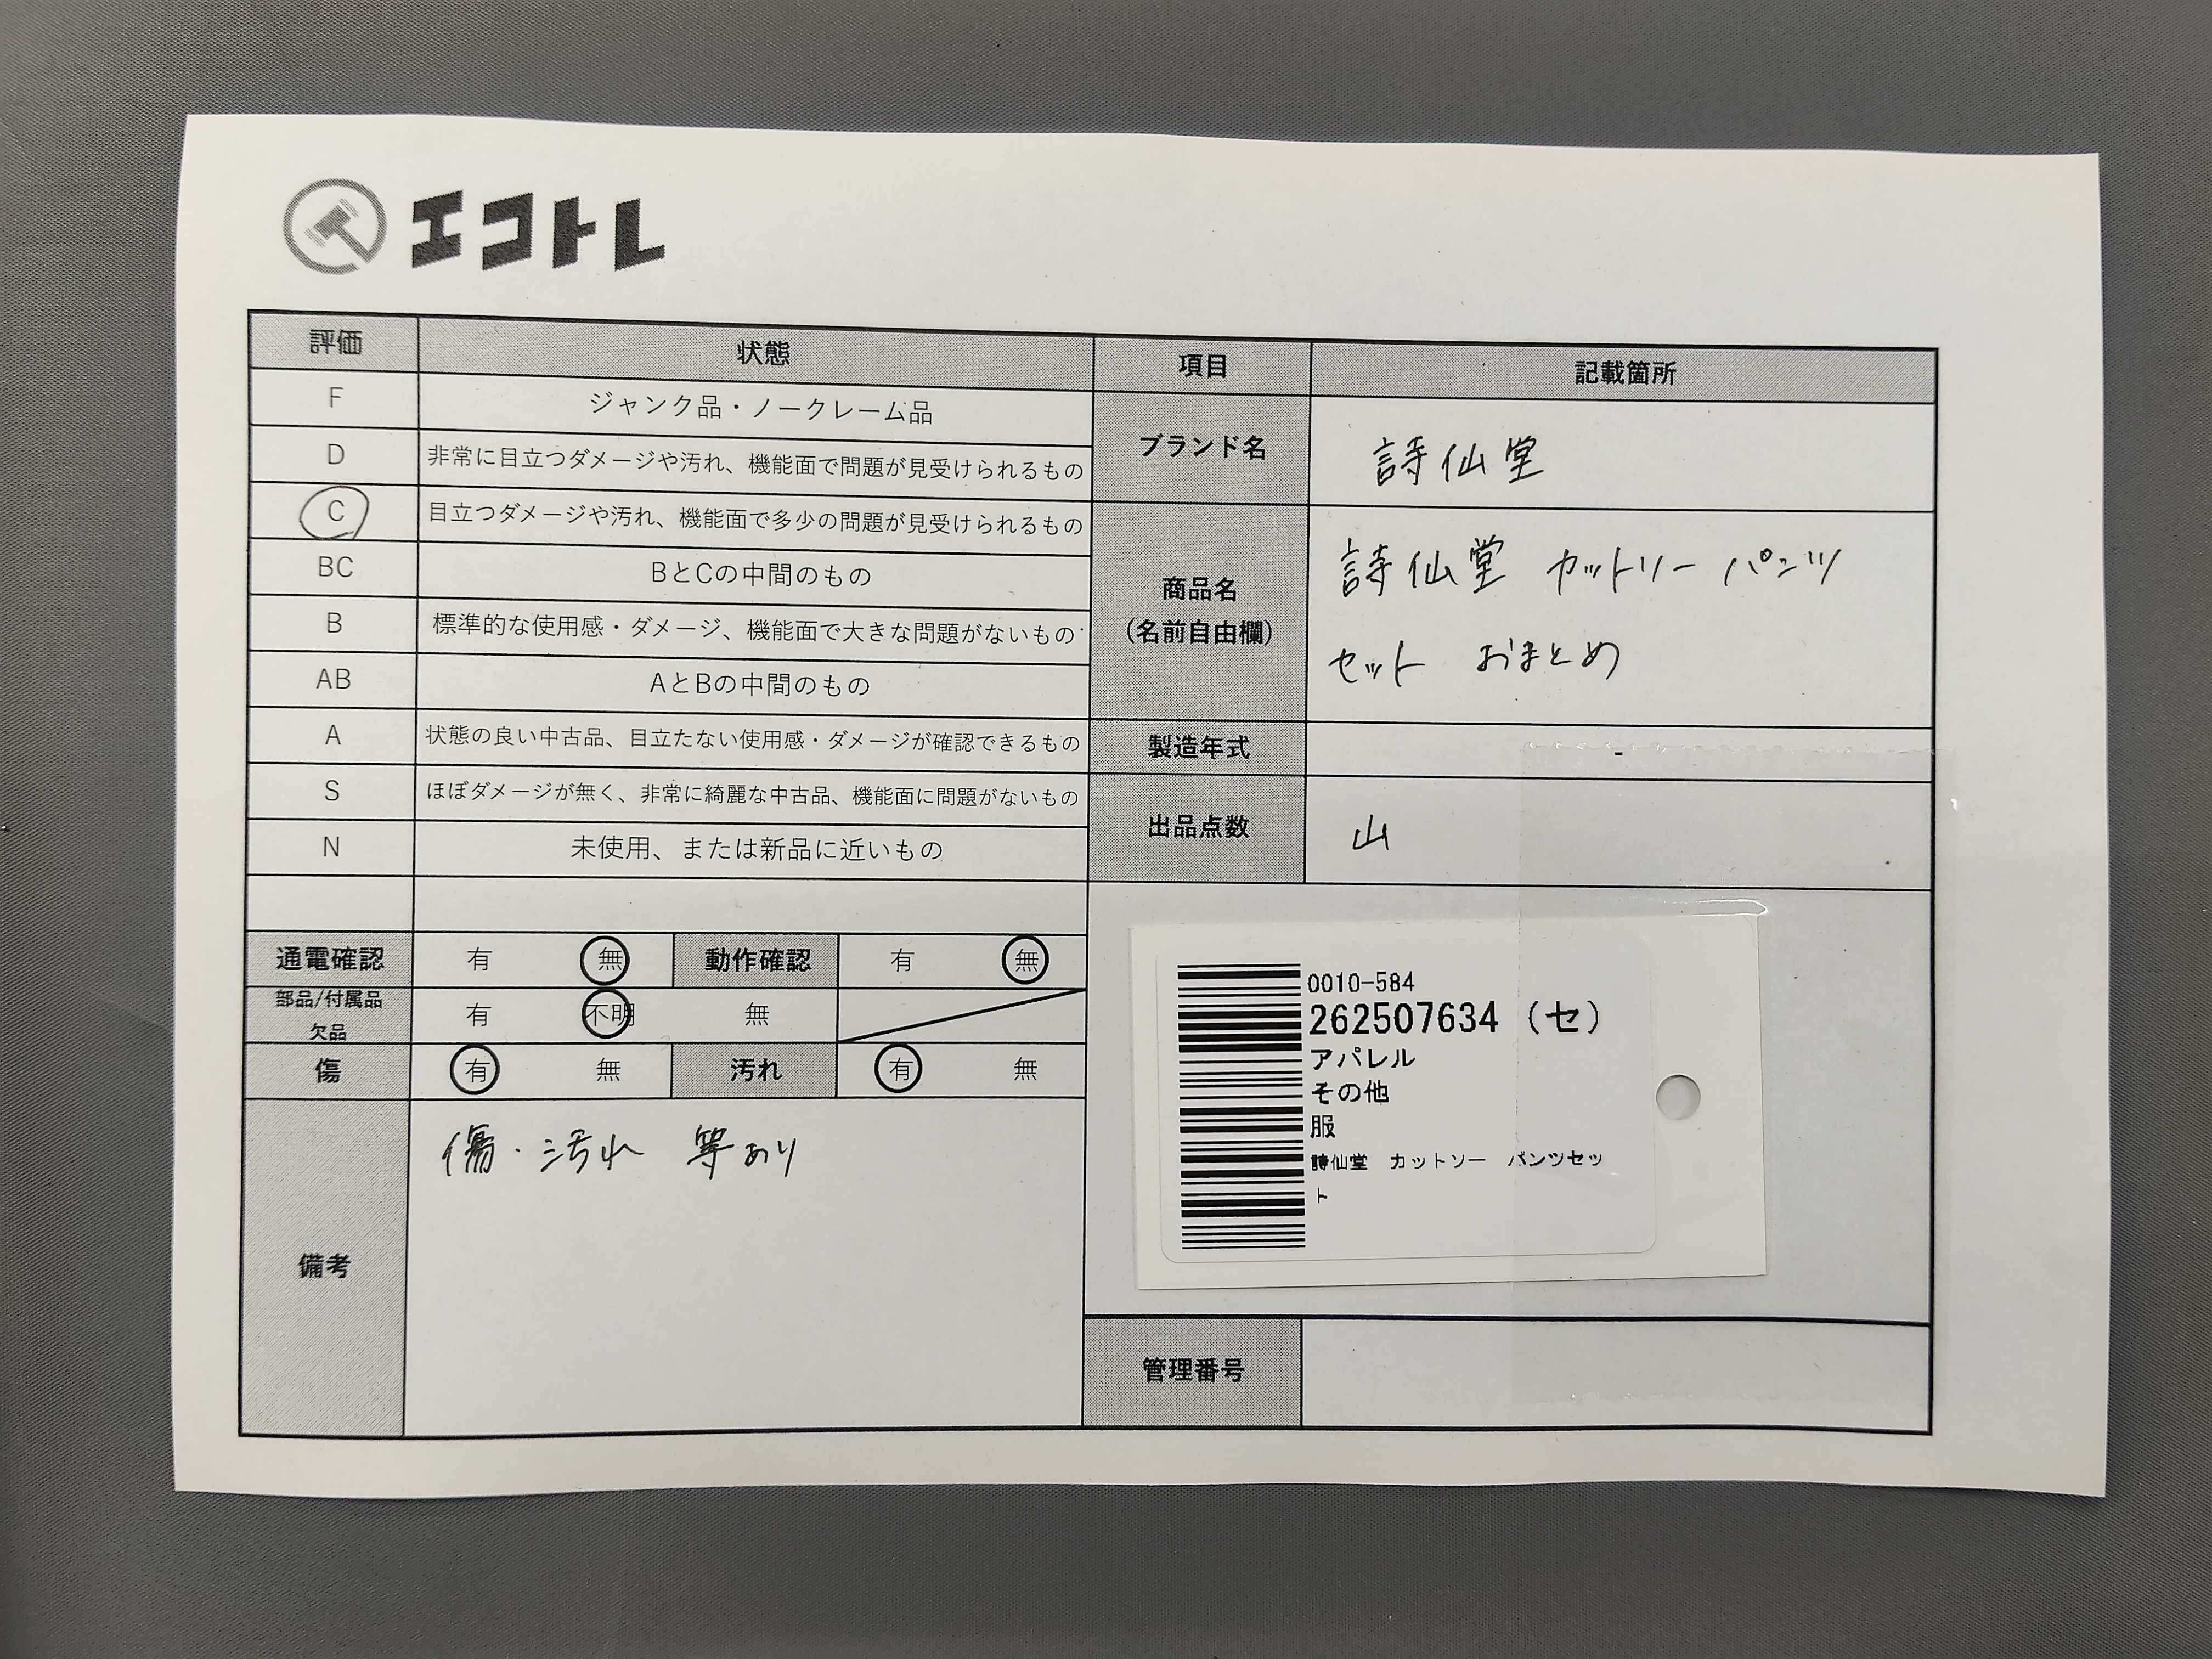 エコトレ
評価 状態 項目 記載箇所
F ジャンク品・ノークレーム品
D 非常に目立つダメージや汚れ、機能面で問題が見受けられるもの
C 目立つダメージや汚れ、機能面で多少の問題が見受けられるもの
BC BとCの中間のもの
B 標準的な使用感・ダメージ、機能面で大きな問題がないもの
AB AとBの中間のもの
A 状態の良い中古品、目立たない使用感・ダメージが確認できるもの
S ほぼダメージが無く、非常に綺麗な中古品、機能面に問題がないもの
N 未使用、または新品に近いもの
ブランド名 詩仙堂
商品名
(名前自由欄)
詩仙堂 カットソー パンツ
セット おまとめ
製造年式 -
出品点数 山
通電確認 有 無 動作確認 有 無
部品/付属品
欠品
有 不明 無
傷 有 無 汚れ 有 無
備考
傷・汚れ 等あり
0010-584
262507634 (セ)
アパレル
その他
服
詩仙堂 カットソー パンツセッ
ト
管理番号